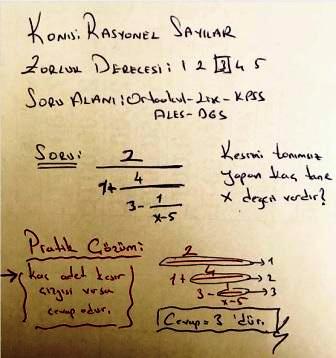 Konu: Rasyonel Sayılar
Zorluk Derecesi: 1 2 3 4 5
Soru Alanı: Ortaokul - Lise - KPSS
ALES - DGS
Soru:
2
1+ 4
3 - 1
x-5
Kesri tanımsız
yapan kaç tane
x değeri vardır?
Pratik Çözüm:
→ Kaç adet kesir
çizgisi varsa
cevap odur.
2 → 1
1+ 4 → 2
3 - 1 → 3
x-5
Cevap = 3 'dür.